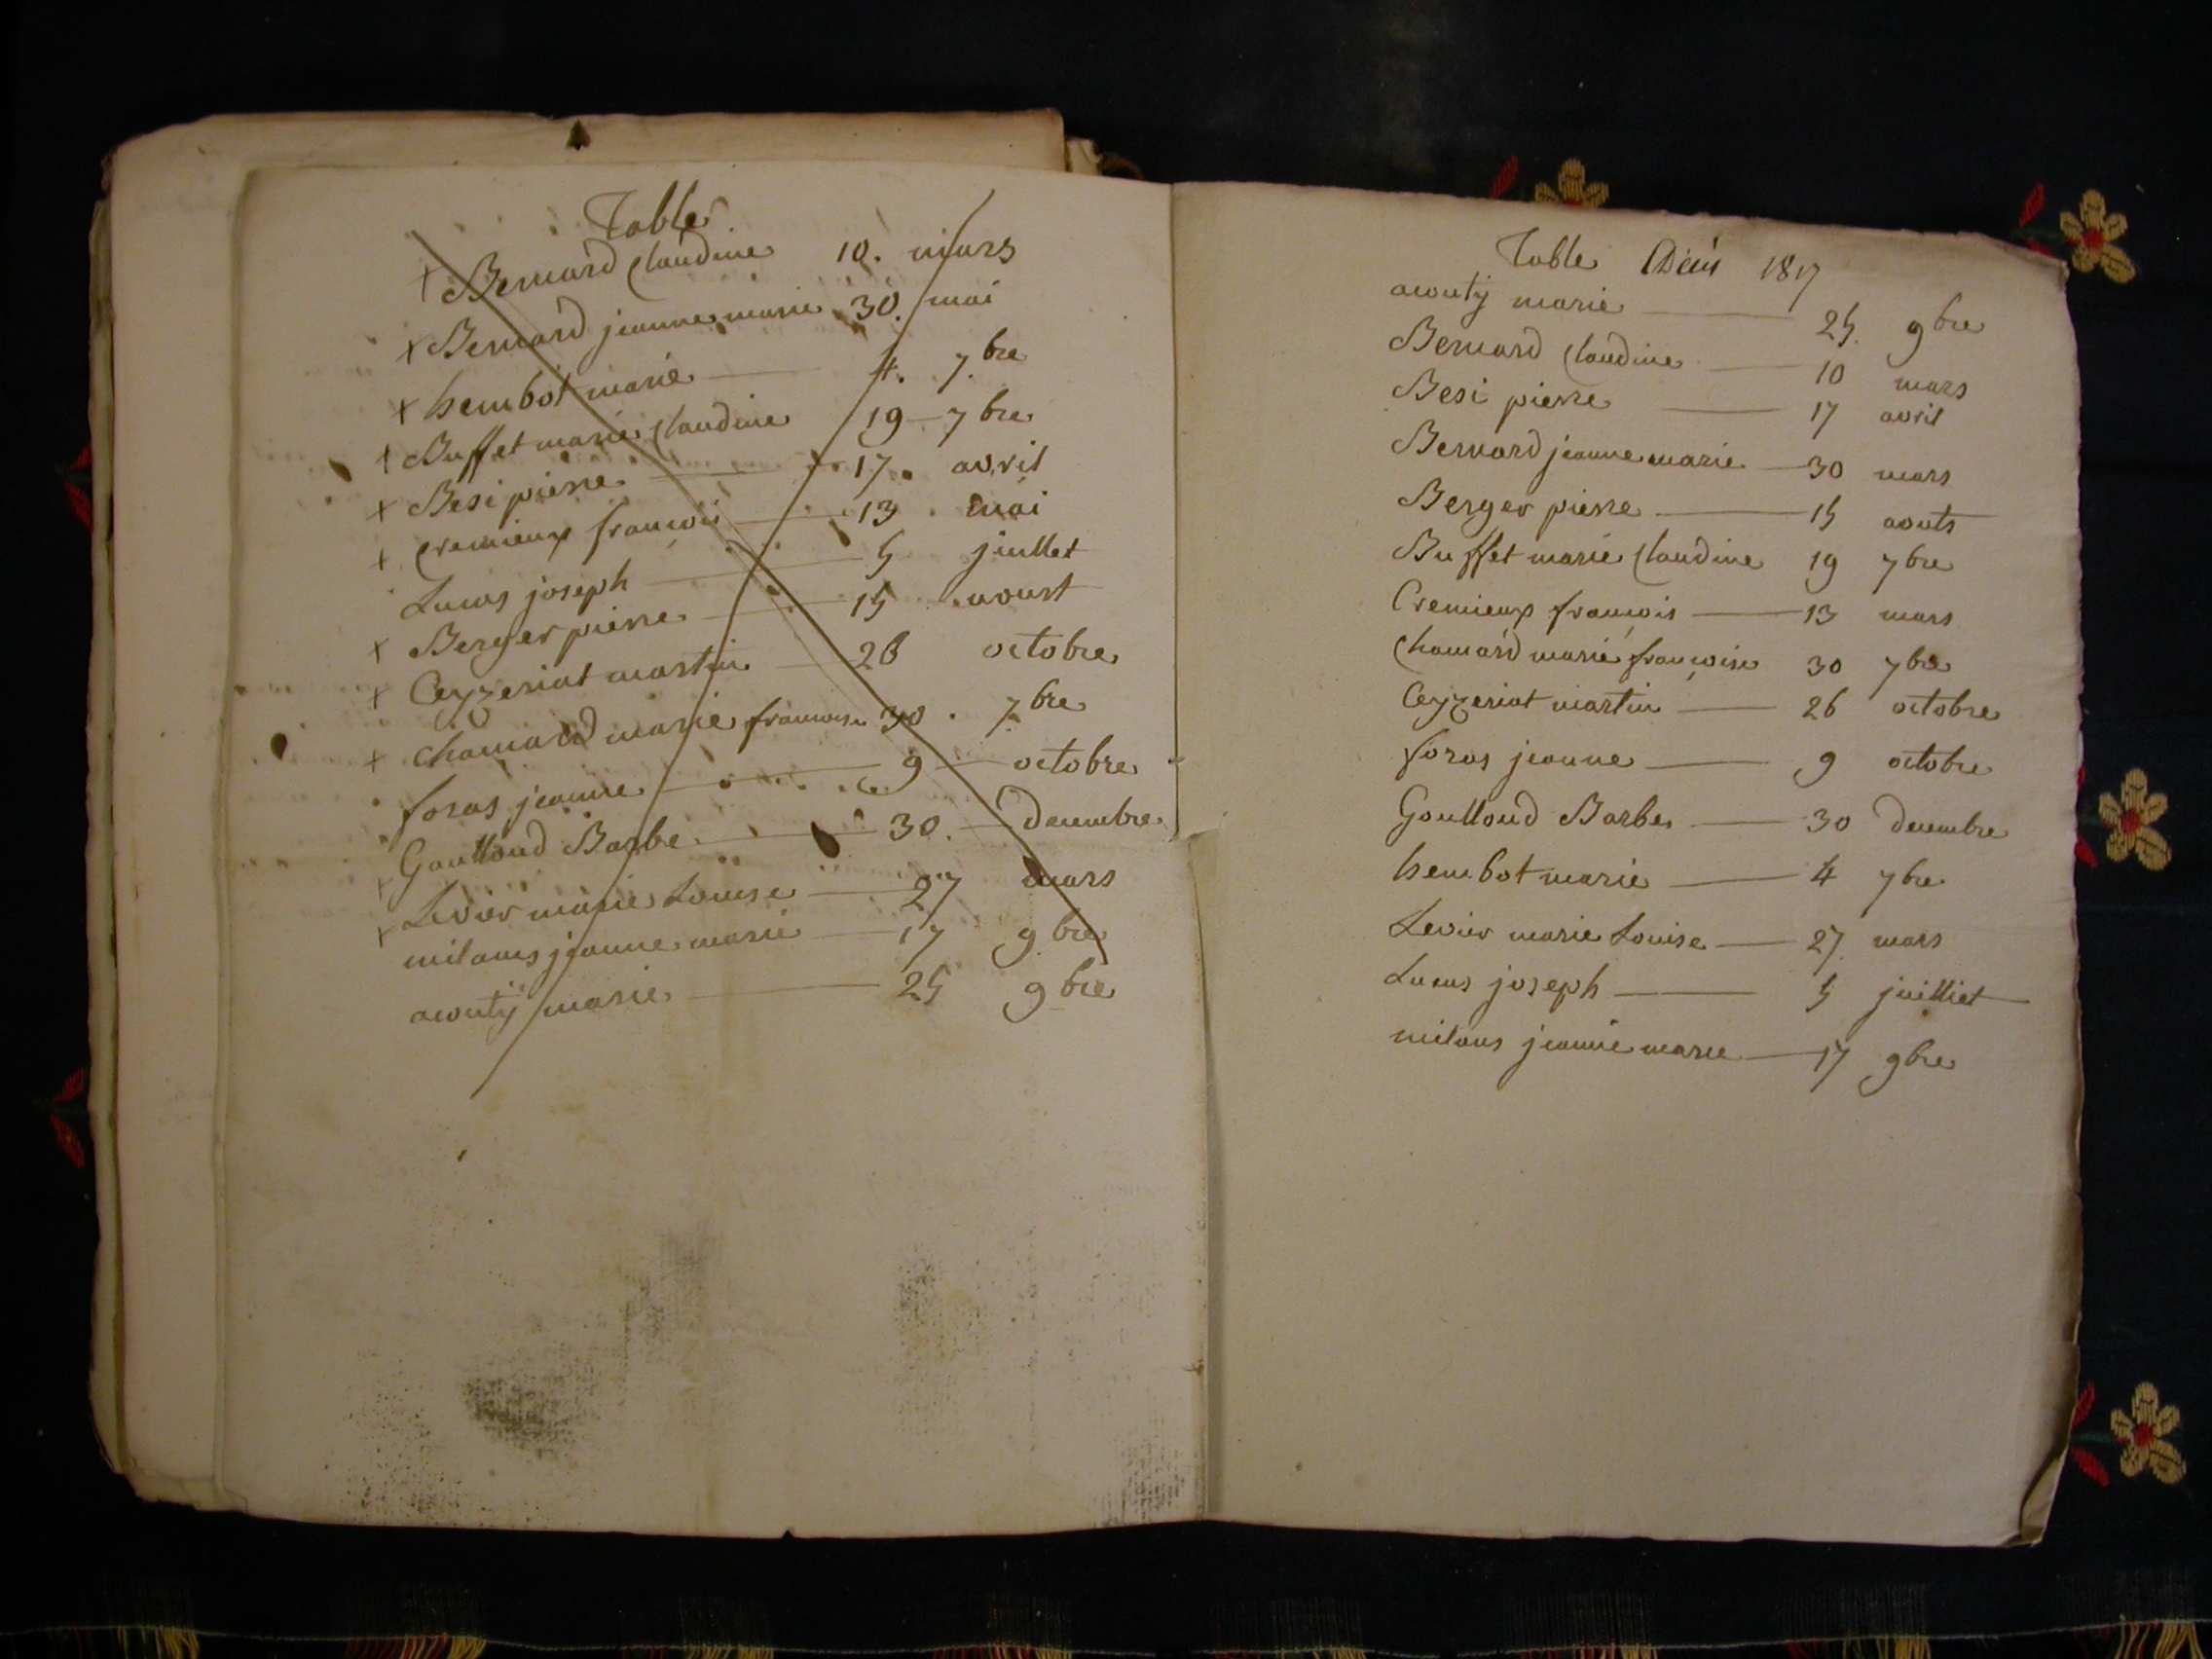 Table
x Bernard Claudine 10. mars
x Bernard jeanne marie 30. mai
x hembot marie 4. 7.bre
x Buffet marie Claudine 19 7bre
x Besi pierre 17. avril
x Cremieux françois 13. mai
Lucas joseph 5 juillet
x Berger pierre 15 aoust
x Ceyzeriat martin 26 octobre
x Chamard marie francoise 30. 7.bre
foras jeanne 9 octobre
x Goulloud Barbe 30. decembre
x Levier marie Louise 27 mars
milans jeanne marie 17 9.bre
acouty marie 25 9bre
Table Décès 1817
acouty marie 25. 9bre
Bernard Claudine 10 mars
Besi pierre 17 avril
Bernard jeanne marie 30 mars
Berger pierre 15 aouts
Buffet marie Claudine 19 7bre
Cremieux françois 13 mars
Chamard marie françoise 30 7bre
Ceyzeriat martin 26 octobre
foras jeanne 9 octobre
Goulloud Barbe 30 decembre
hembot marie 4 7bre
Levier marie Louise 27. mars
Lucas joseph 5 juilliet
milans jeanne marie 17 9bre